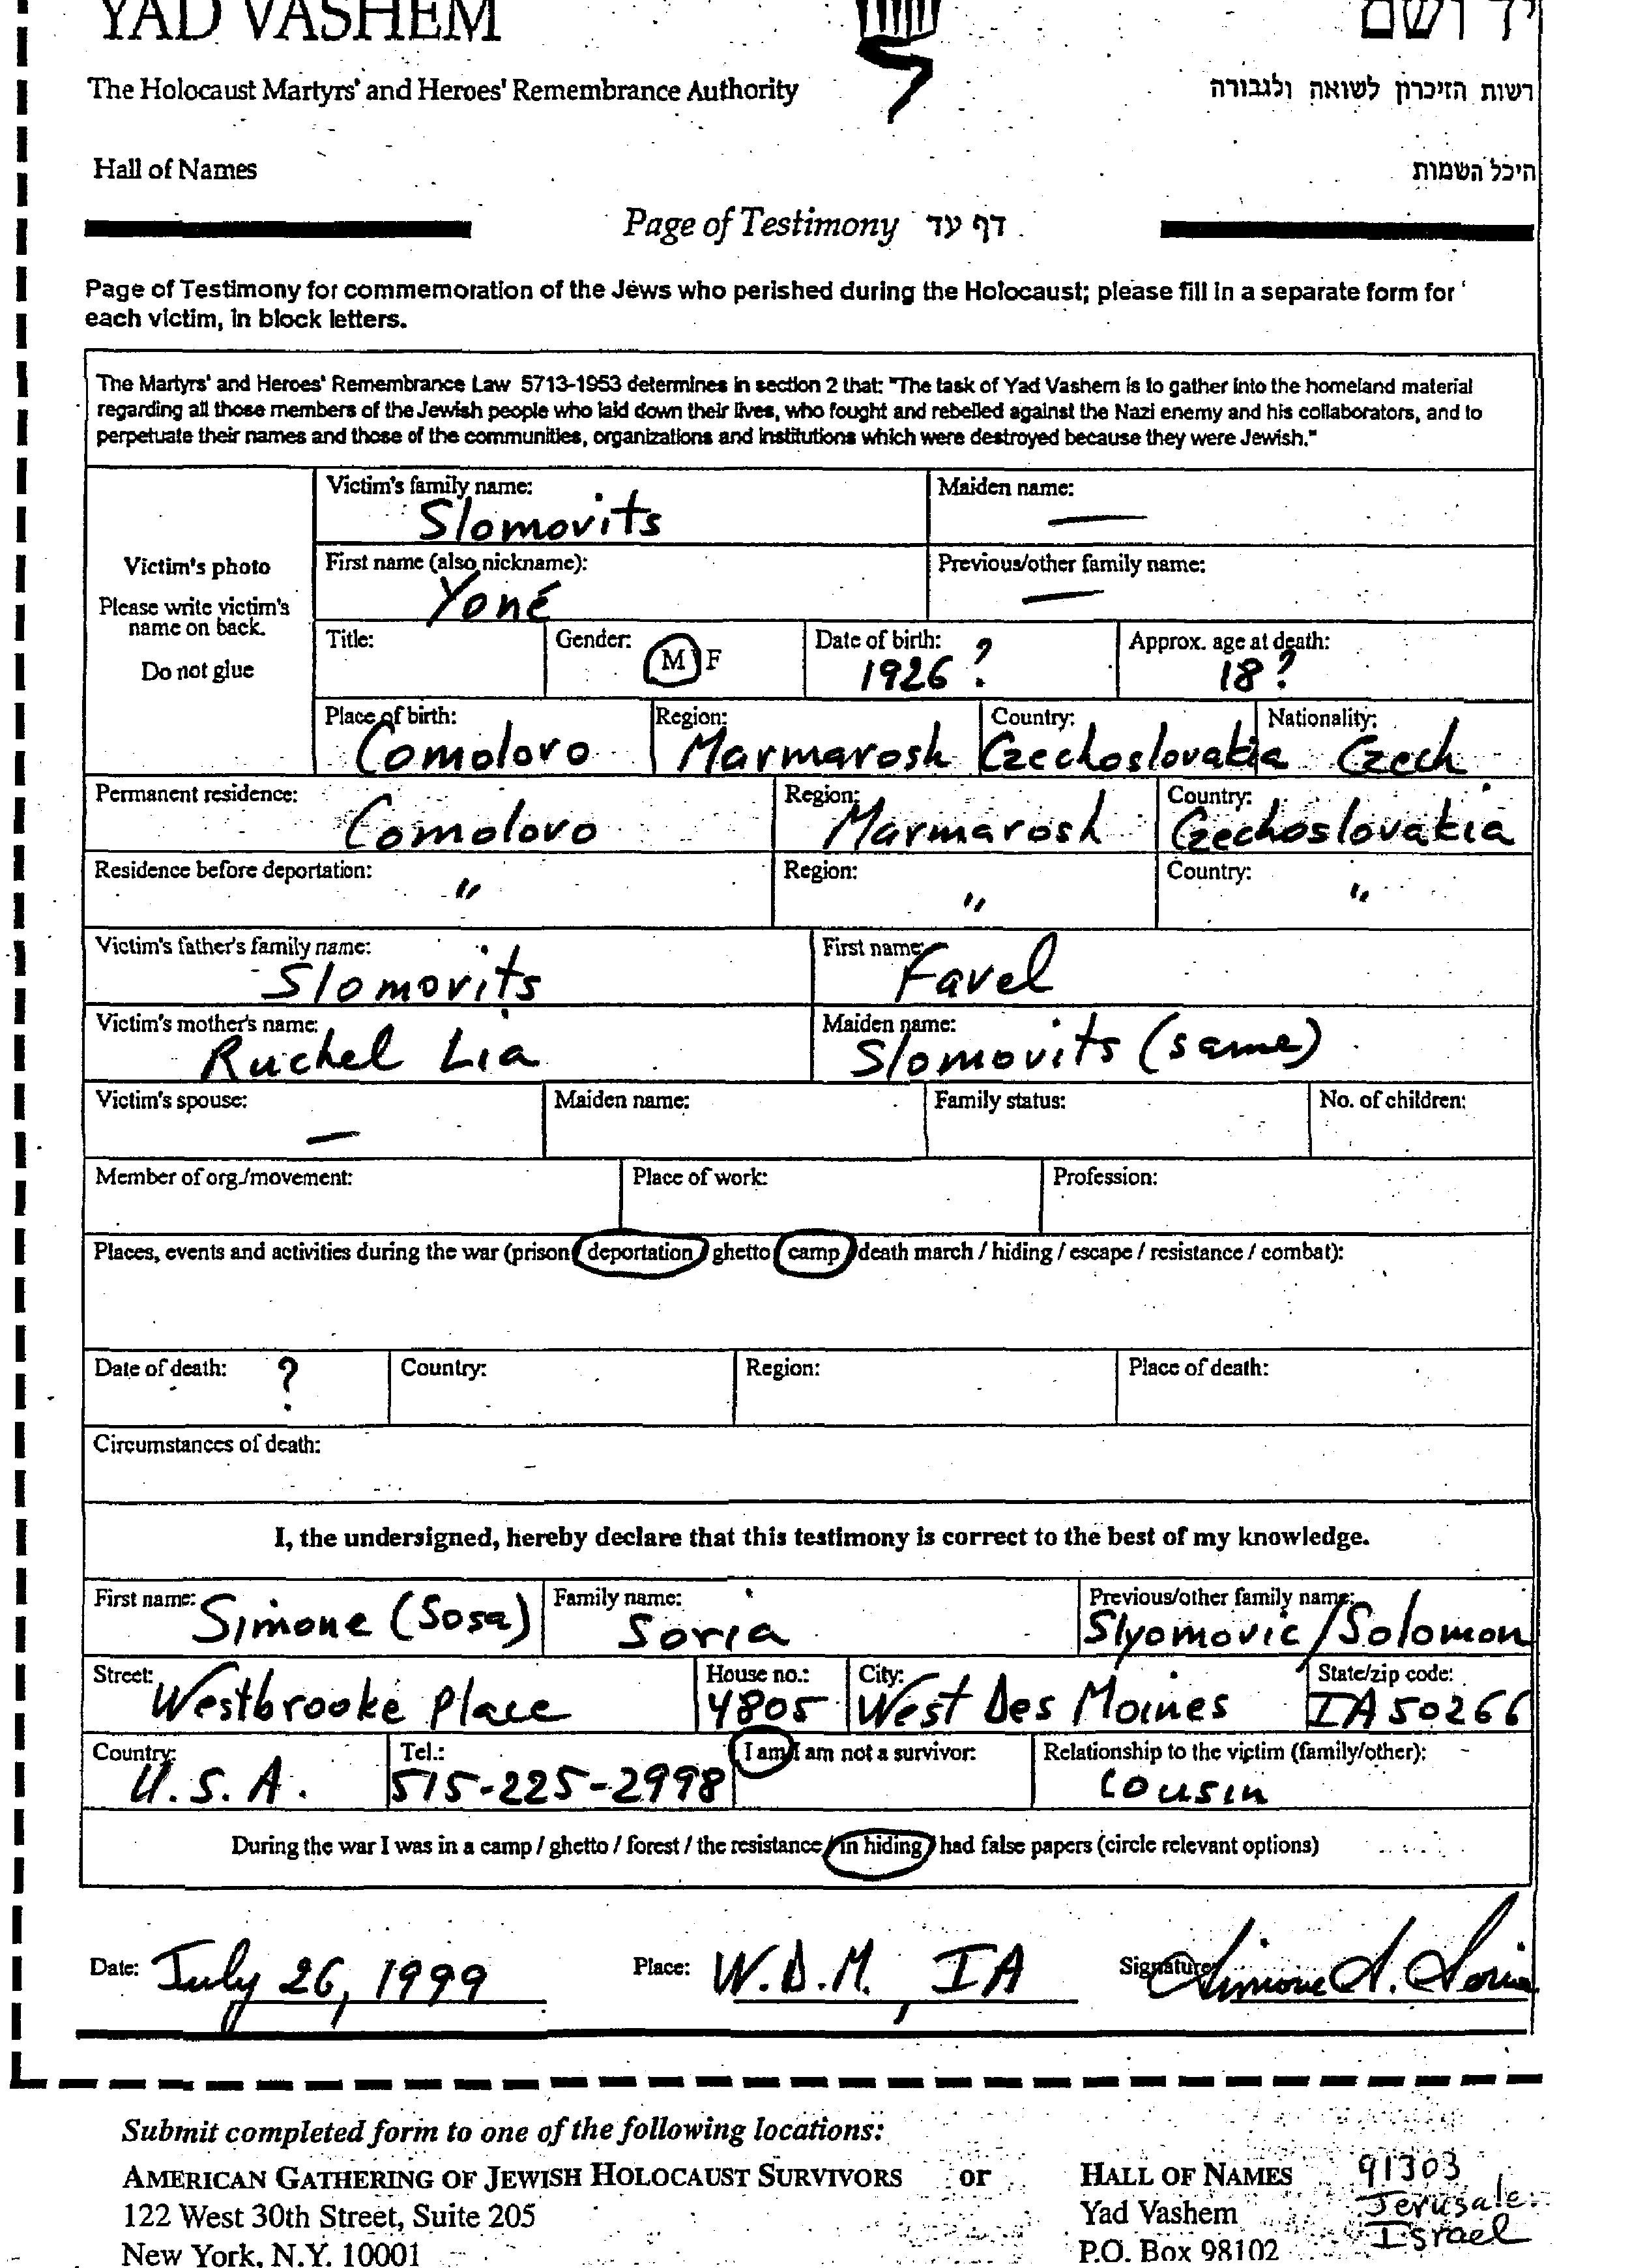 YAD VASHEM
יד ושם
The Holocaust Martyrs' and Heroes' Remembrance Authority
רשות הזיכרון לשואה ולגבורה
Hall of Names
היכל השמות
Page of Testimony דף עד
Page of Testimony for commemoration of the Jews who perished during the Holocaust; please fill in a separate form for
each victim, in block letters.
The Martyrs' and Heroes' Remembrance Law 5713-1953 determines in section 2 that: "The task of Yad Vashem is to gather into the homeland material
regarding all those members of the Jewish people who laid down their lives, who fought and rebelled against the Nazi enemy and his collaborators, and to
perpetuate their names and those of the communities, organizations and institutions which were destroyed because they were Jewish."
Victim's photo
Please write victim's
name on back.
Do not glue
Victim's family name: Maiden name:
Slomovits —
First name (also nickname): Previous/other family name:
Yoné —
Title: Gender: M F Date of birth: Approx. age at death:
1926? 18?
Place of birth: Region: Country: Nationality:
Comoloro Marmarosh Czechoslovakia Czech
Permanent residence: Region: Country:
Comoloro Marmarosh Czechoslovakia
Residence before deportation: Region: Country:
" " "
Victim's father's family name: First name:
Slomovits Favel
Victim's mother's name: Maiden name:
Ruchel Lia Slomovits (same)
Victim's spouse: Maiden name: Family status: No. of children:
—
Member of org./movement: Place of work: Profession:
Places, events and activities during the war (prison / deportation / ghetto / camp / death march / hiding / escape / resistance / combat):
Date of death: ? Country: Region: Place of death:
Circumstances of death:
I, the undersigned, hereby declare that this testimony is correct to the best of my knowledge.
First name: Family name: Previous/other family name:
Simone (Sosa) Soria Slyomovic/Solomon
Street: House no.: City: State/zip code:
Westbrooke Place 4805 West Des Moines IA 50266
Country: Tel.: I am / I am not a survivor: Relationship to the victim (family/other):
U.S.A. 515-225-2998 cousin
During the war I was in a camp / ghetto / forest / the resistance / in hiding / had false papers (circle relevant options)
Date: July 26, 1999 Place: W.D.M., IA Signature: Simone S. Soria
Submit completed form to one of the following locations:
AMERICAN GATHERING OF JEWISH HOLOCAUST SURVIVORS or HALL OF NAMES 91303
122 West 30th Street, Suite 205 Yad Vashem Jerusale
New York, N.Y. 10001 P.O. Box 98102 Israel